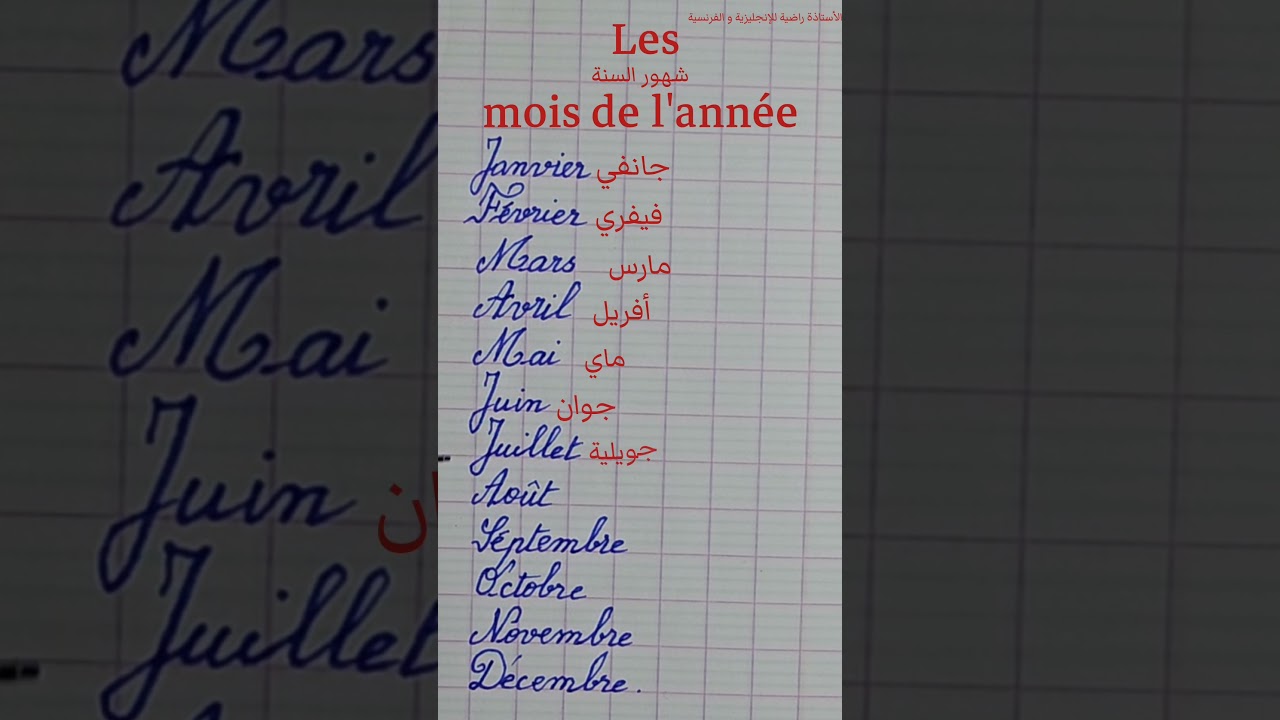 الأستاذة راضية للإنجليزية و الفرنسية
Les
شهور السنة
mois de l'année
Janvier جانفي
Février فيفري
Mars مارس
Avril أفريل
Mai ماي
Juin جوان
Juillet جويلية
Août
Séptembre
Octobre
Novembre
Décembre.